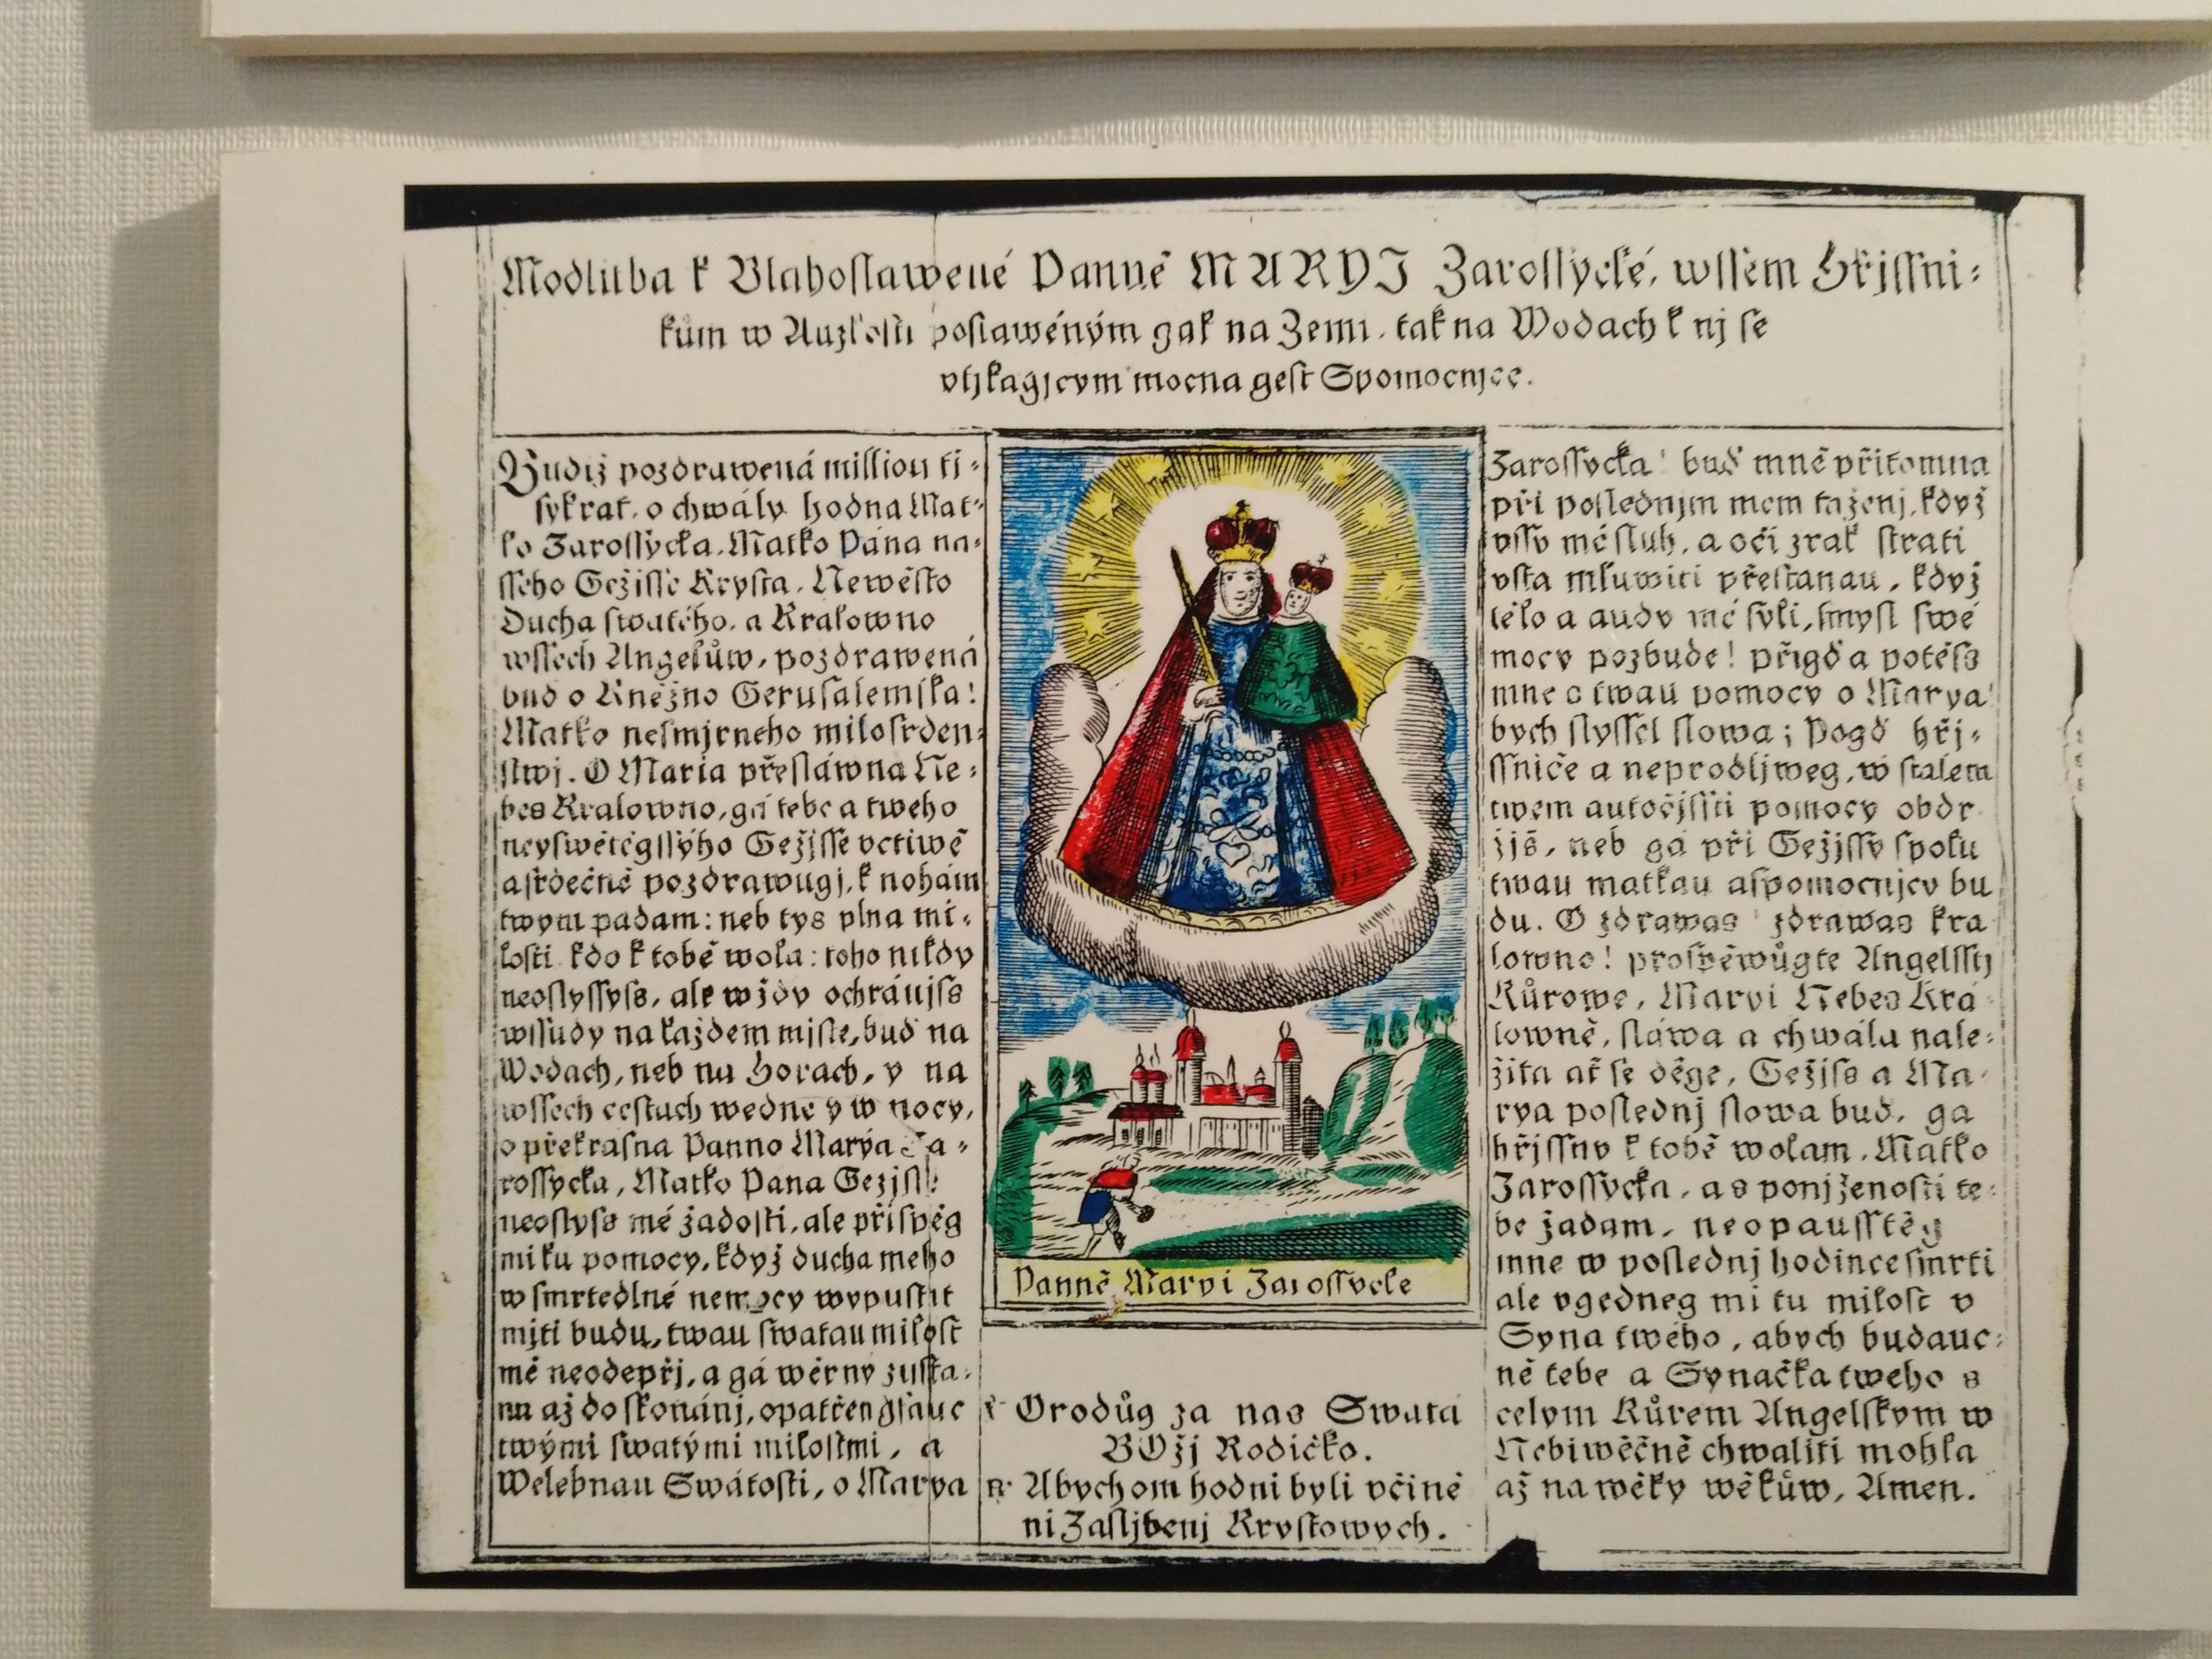 Modlitba k Blahoſlawené Panně MARYJ Zaroſſycké, wſſem Hřjſſni⸗
kům w Auzkoſti poſtaweným gak na Zemi, tak na Wodach k nj ſe
vtjkagjcym mocna geſt Spomocnjce.
Budiž pozdrawená million ti⸗
ſykrat, o chwály hodna Mat⸗
ko Zaroſſycka, Matko Pána na⸗
ſſeho Gežiſſe Kryſta, Newěſto
Ducha ſwatého, a Kralowno
wſſech Angelůw, pozdrawená
bud o Kněžno Geruſalemſka!
Matko neſmjrneho miloſrden⸗
ſtwj. O Maria přeſláwna Ne⸗
bes Kralowno, gá tebe a tweho
neyſwětěgſſýho Gežjſſe vctiwě
a ſrdečně pozdrawugj, k nohám
twym padam: neb tys plna mi⸗
loſti kdo k tobě wola: toho nikdy
neoſlyſſyſs, ale wždy ochránjſs
wſſudy na každem mjſte, bud na
Wodach, neb na Horach, y na
wſſech ceſtach wedne y w nocy,
o překraſna Panno Marýa Za⸗
roſſycka, Matko Pana Gezjſſe
neoſlyſs mé žadoſti, ale přiſpěg
mi ku pomocy, když ducha meho
w ſmrtedlné nemocy wypuſtit
mjti budu, twau ſwatau miloſt
mě neodepřj, a gá wěrny zuſta⸗
nu až do ſkonánj, opatřen gſauc
twými ſwatými miloſtmi, a
Welebnau Swátoſti, o Marya
Panně Maryi Zaroſſycke
℣ Orodůg za nas Swatá
BOžj Rodičko.
℟ Abychom hodni byli včině
ni Zaſljbenj Kryſtowych.
Zaroſſycka! buď mně přitomna
při poſlednjm mem taženj, když
vſſy mé ſluh, a oči zrak ſtrati
vſta mluwiti přeſtanau, když
tělo a audy mé ſyli, ſmyſl ſwé
mocy pozbude! přigď a potěſs
mne s twau pomocy o Marya!
bych ſlyſſel ſlowa; Pogď hřj⸗
ſſniče a neprodljweg, w ſtalem
twem autočjſſti pomocy obdr
žjš, neb gá při Gežjſſy ſpolu
twau matkau a ſpomocnjcy bu
du. O zdrawas zdrawas kra
lowno! proſpěwůgte Angelſſtj
Kůrowe, Maryi Nebes Kra⸗
lowně, ſláwa a chwála nale⸗
žita ať ſe děge, Gežjſs a Ma⸗
rya poſlednj ſlowa bud, ga
hřjſſny k tobě wolam, Matko
Zaroſſycka, a s ponjženoſti te⸗
be žadam, neopauſſtěg
mne w poſlednj hodince ſmrti
ale vgedneg mi tu miloſt v
Syna twého, abych budauc⸗
ně tebe a Synačka tweho s
celym Kůrem Angelſkym w
Nebi wěčně chwaliti mohla
až na wěky wěkůw, Amen.